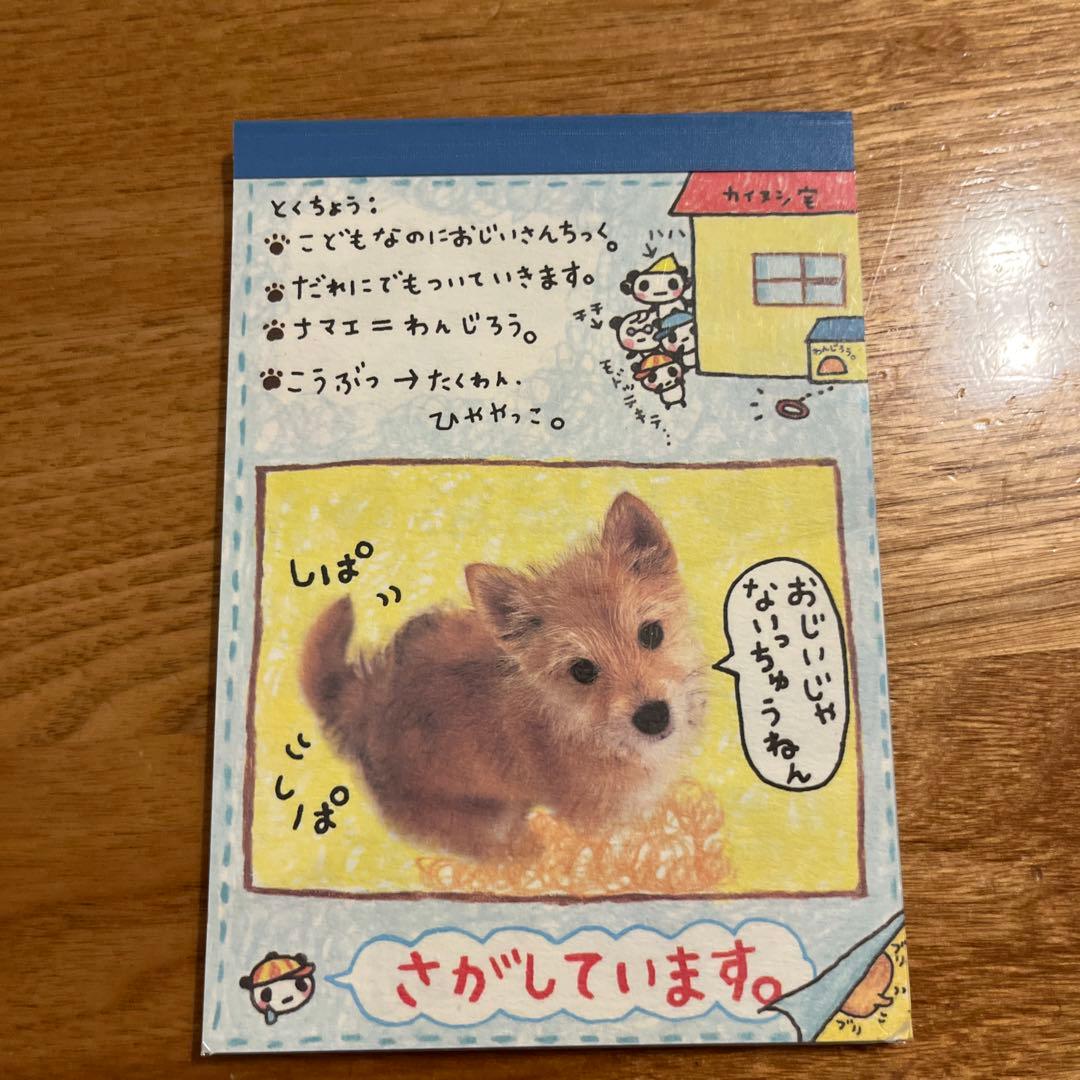 とくちょう:
こどもなのにおじいさんちっく。
だれにでもついていきます。
ナマエ=わんじろう。
こうぶつ→たくわん.
ひややっこ。
カイヌシ宅
ハハ
チチ
モドッテキテ...
わんじろう。
しぱ°
おじいじゃ
ないっちゅうねん
しぱ°
さがしています。
プリ
プリ